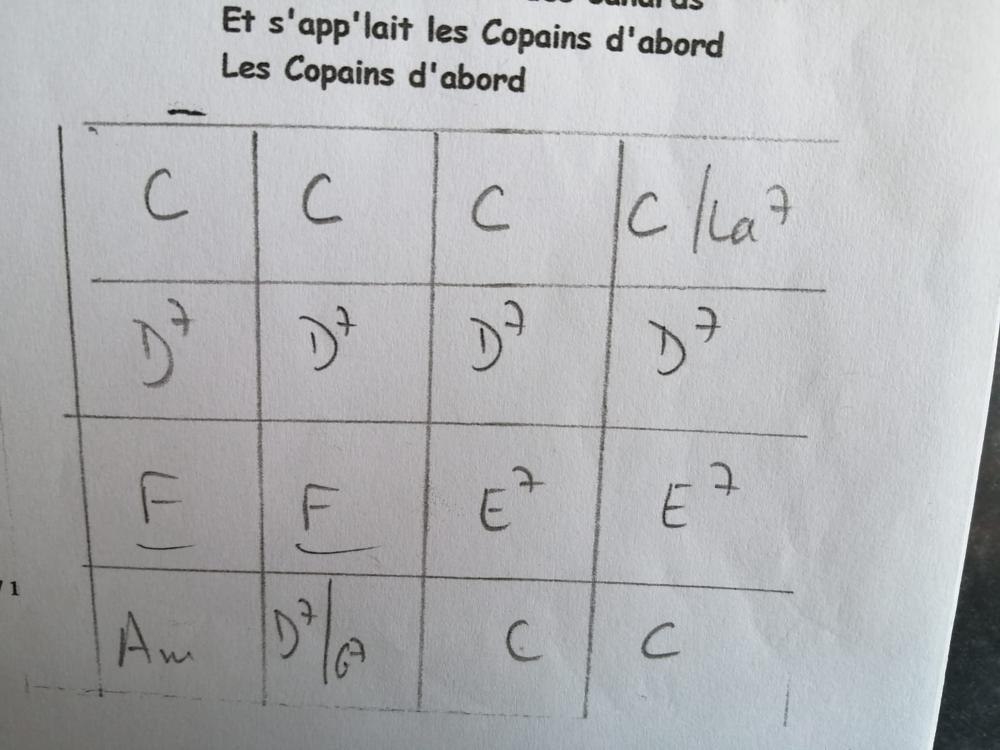 Et s'app'lait les Copains d'abord
Les Copains d'abord
C C C C/La7
D7 D7 D7 D7
F F E7 E7
/1
Am D7/G7 C C